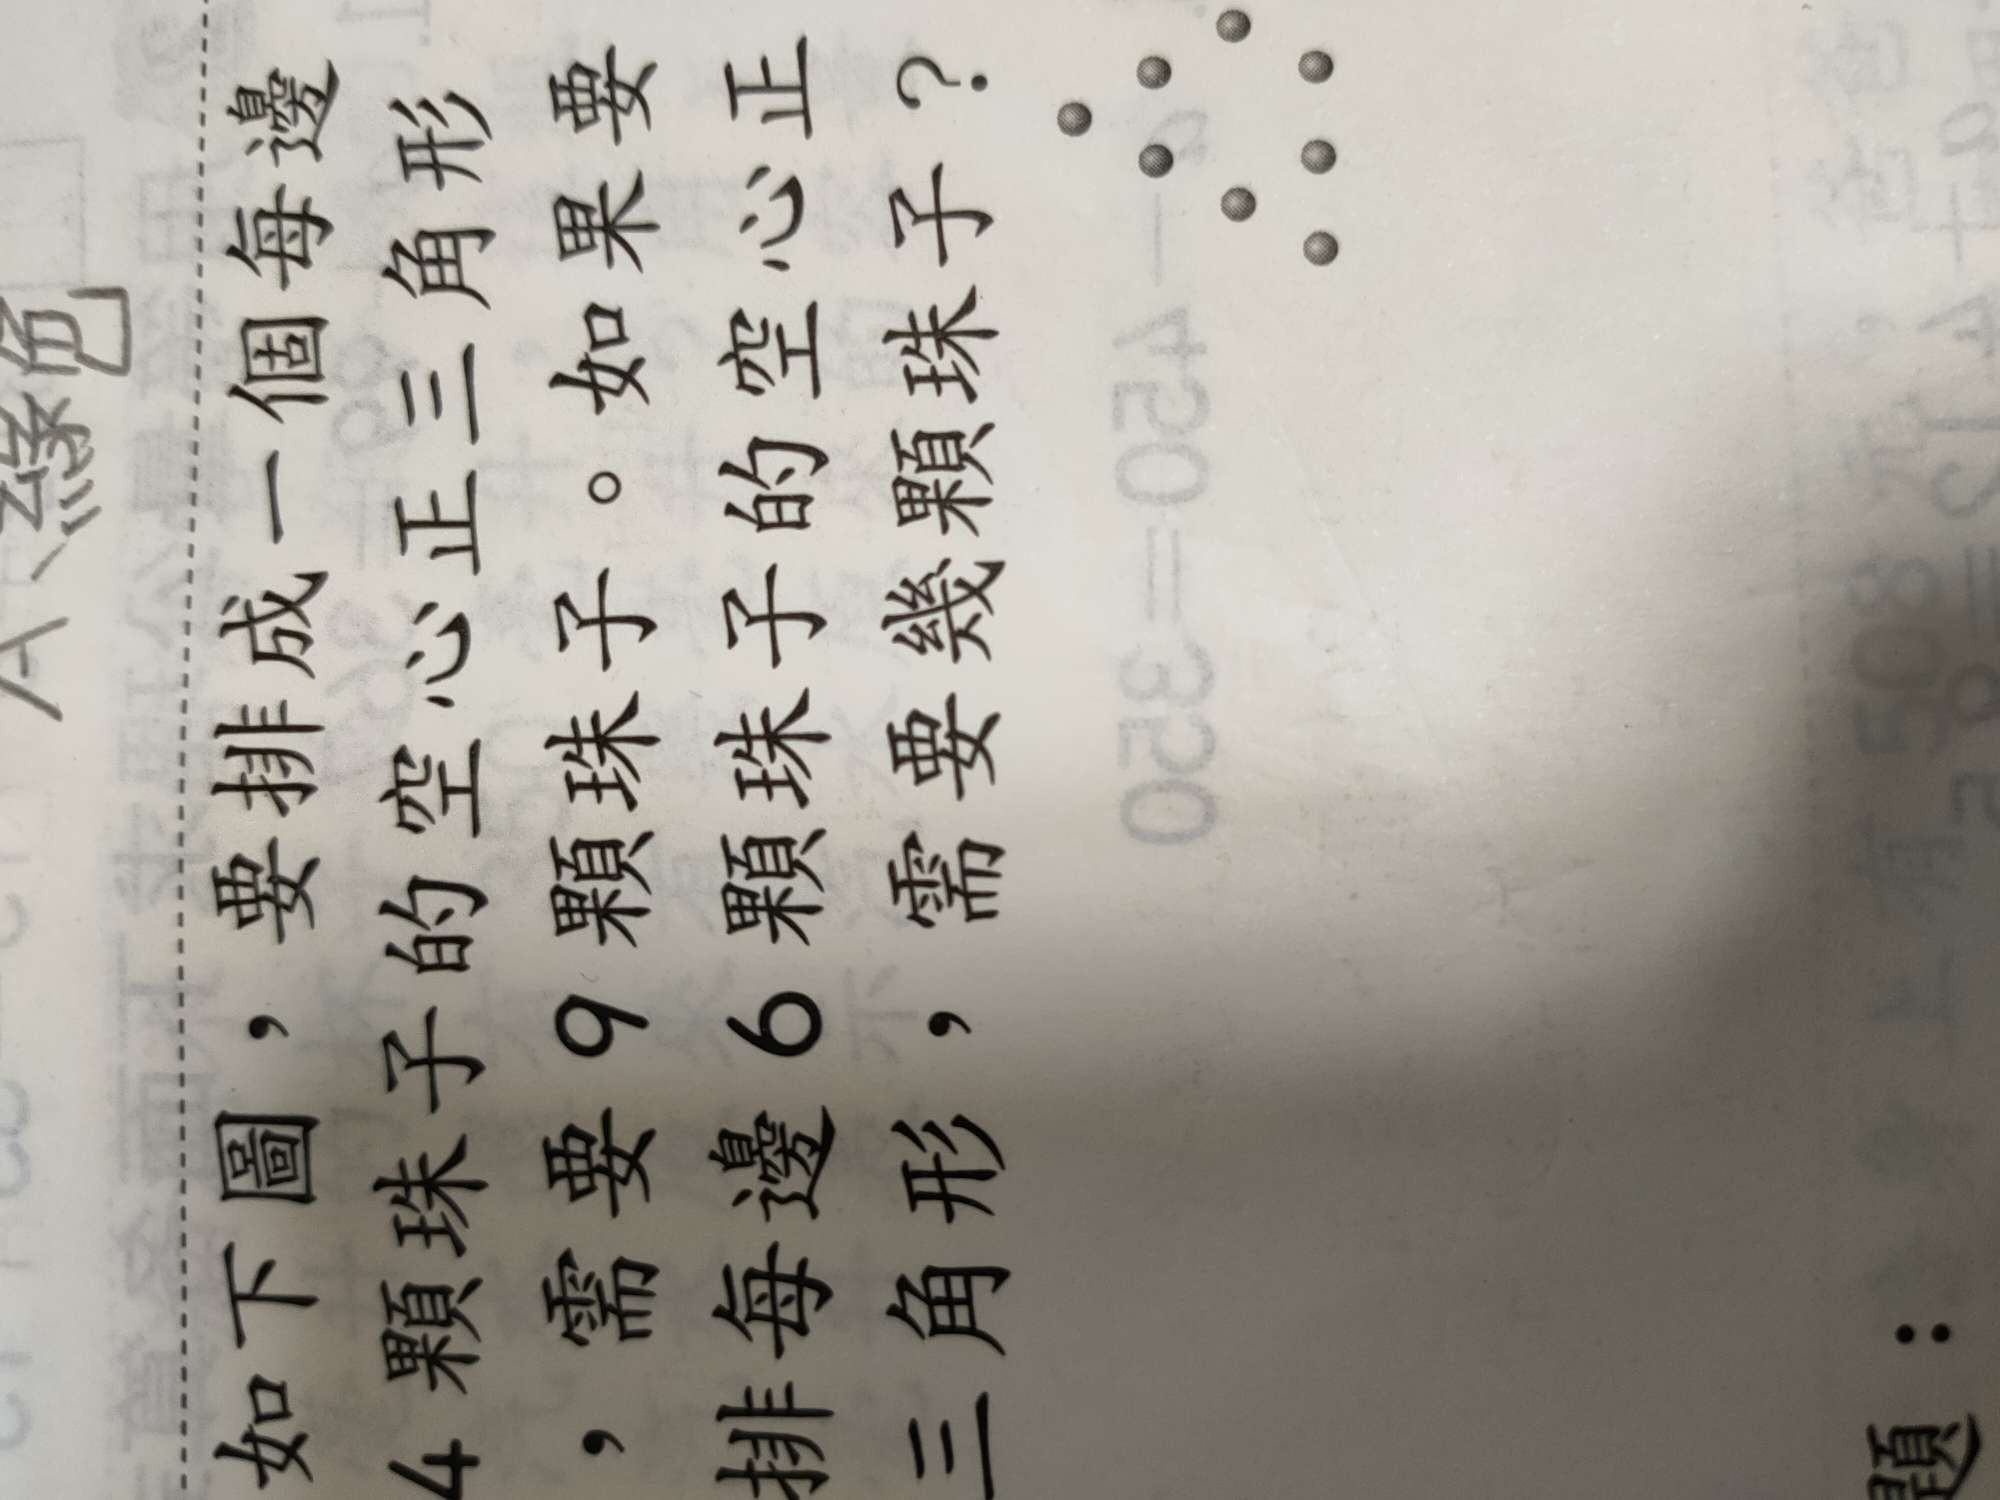 A綠色
如下圖,要排成一個每邊
4顆珠子的空心正三角形
,需要9顆珠子。如果要
排每邊6顆珠子的空心正
三角形,需要幾顆珠子?
題: